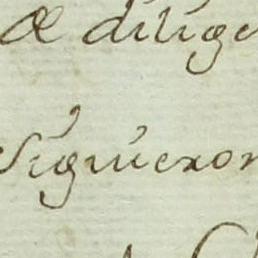 æ dilige
Siguieron